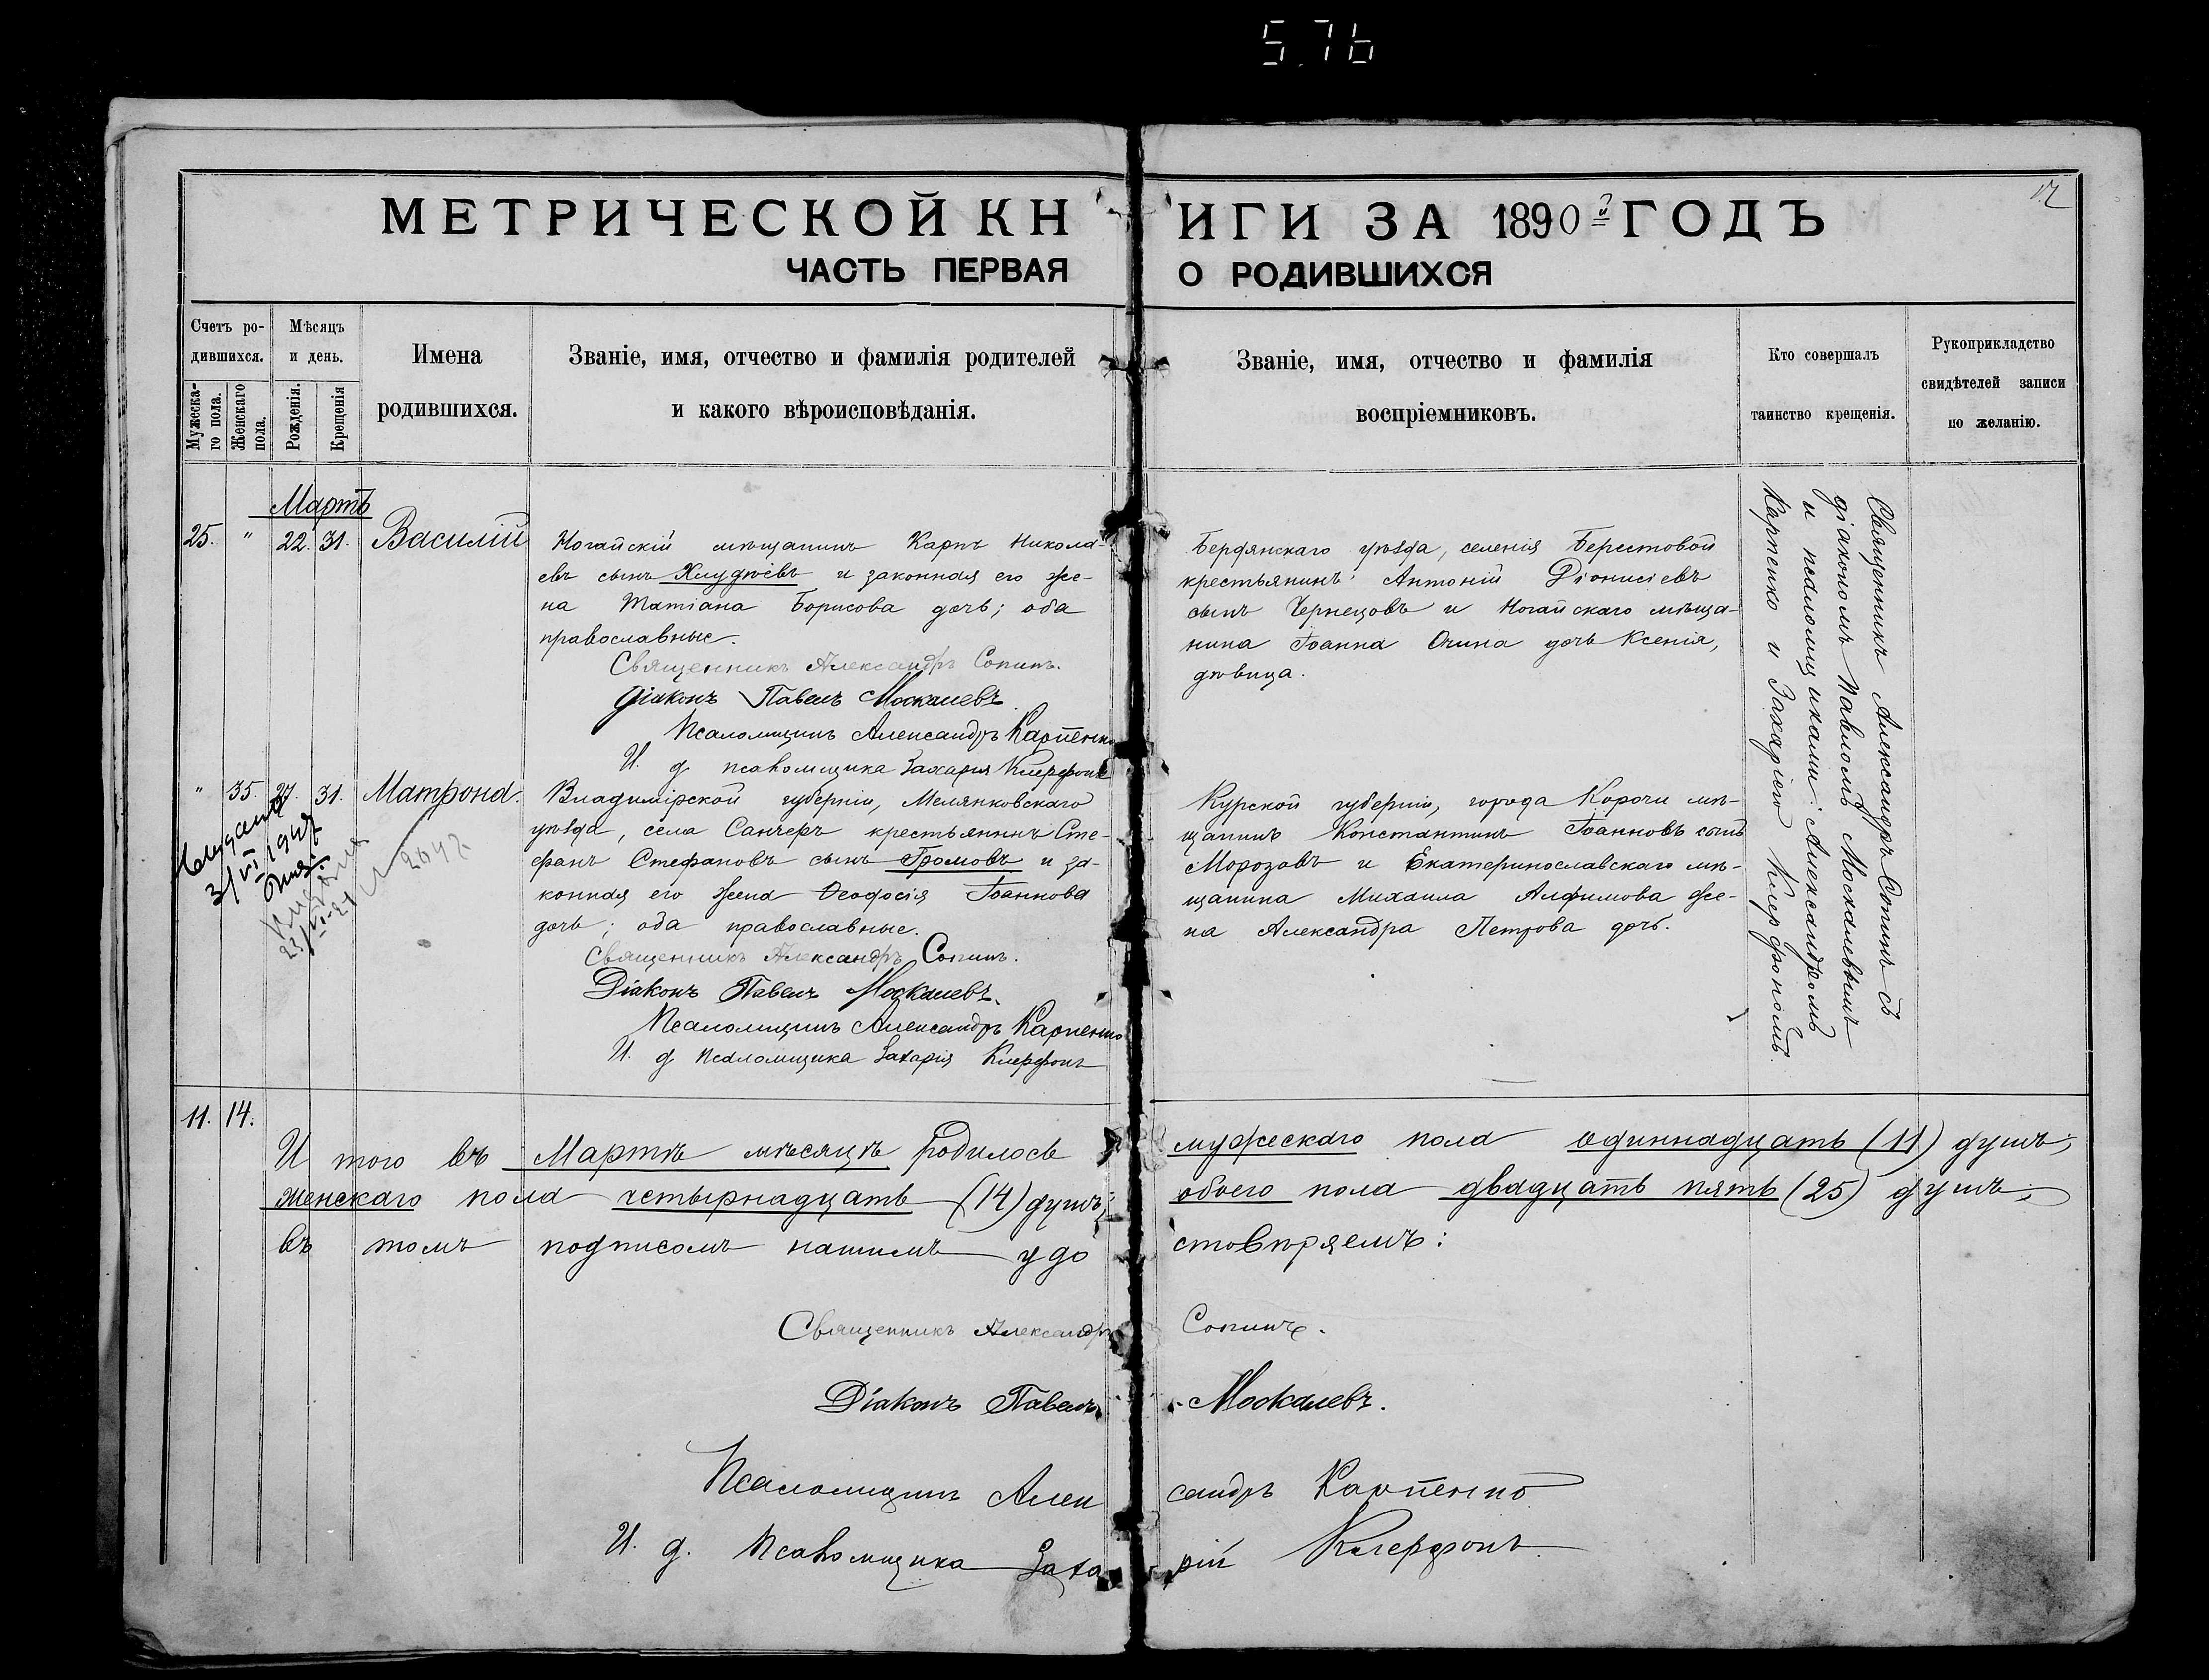 5.76
12
МЕТРИЧЕСКОЙ КНИГИ ЗА 1890й ГОДЪ
ЧАСТЬ ПЕРВАЯ О РОДИВШИХСЯ
Счетъ ро-
дившихся.
Мужеска-
го пола.
Женскаго
пола.
Мѣсяцъ
и день.
Рожденія.
Крещенія
Имена
родившихся.
Званіе, имя, отчество и фамилія родителей
и какого вѣроисповѣданія.
Званіе, имя, отчество и фамилія
воспріемниковъ.
Кто совершалъ
таинство крещенія.
Рукоприкладство
свидѣтелей записи
по желанію.
Мартъ
25. " 22. 31. Василій
Ногайскій мѣщанинъ Карпъ Никола-
евъ сынъ Хлудѣевъ и законная его же-
на Татіана Борисова дочь; оба
православные.
Священникъ Александръ Сопинъ.
Діаконъ Павелъ Москалевъ.
Псаломщикъ Александръ Карпенко
И. д. псаломщика Захарія Клерфонъ
Бердянскаго уѣзда, селенія Берестовой
крестьянинъ Антоній Діонисіевъ
сынъ Чернецовъ и Ногайскаго мѣща-
нина Іоанна дочь Ксенія,
дѣвица.
" 35. 27. 31. Матрона.
Владимірской губерніи, Меленковскаго
уѣзда, села Санчеръ крестьянинъ Сте-
фанъ Стефановъ сынъ Громовъ и за-
конная его жена Ѳеодосія Іоаннова
дочь; оба православные.
Священникъ Александръ Сопинъ.
Діаконъ Павелъ Москалевъ.
Псаломщикъ Александръ Карпенко
И. д. псаломщика Захарія Клерфонъ
Курской губерніи, города Корочи мѣ-
щанинъ Константинъ Іоанновъ сынъ
Морозовъ и Екатеринославскаго мѣ-
щанина Михаила Алфимова же-
на Александра Петрова дочь.
Священникъ Александръ Сопинъ съ
діакономъ Павломъ Москалевымъ
и псаломщиками: Александромъ
Карпенко и Захаріею Клерфономъ.
11. 14.
И того въ Мартѣ мѣсяцѣ родилось мужескаго пола одиннадцать (11) душъ;
женскаго пола четырнадцать (14) душъ; обоего пола двадцать пять (25) душъ;
въ томъ подписомъ нашимъ удостовѣряемъ:
Священникъ Александръ Сопинъ.
Діаконъ Павелъ Москалевъ.
Псаломщикъ Александръ Карпенко
И. д. Псаломщика Захарій Клерфонъ